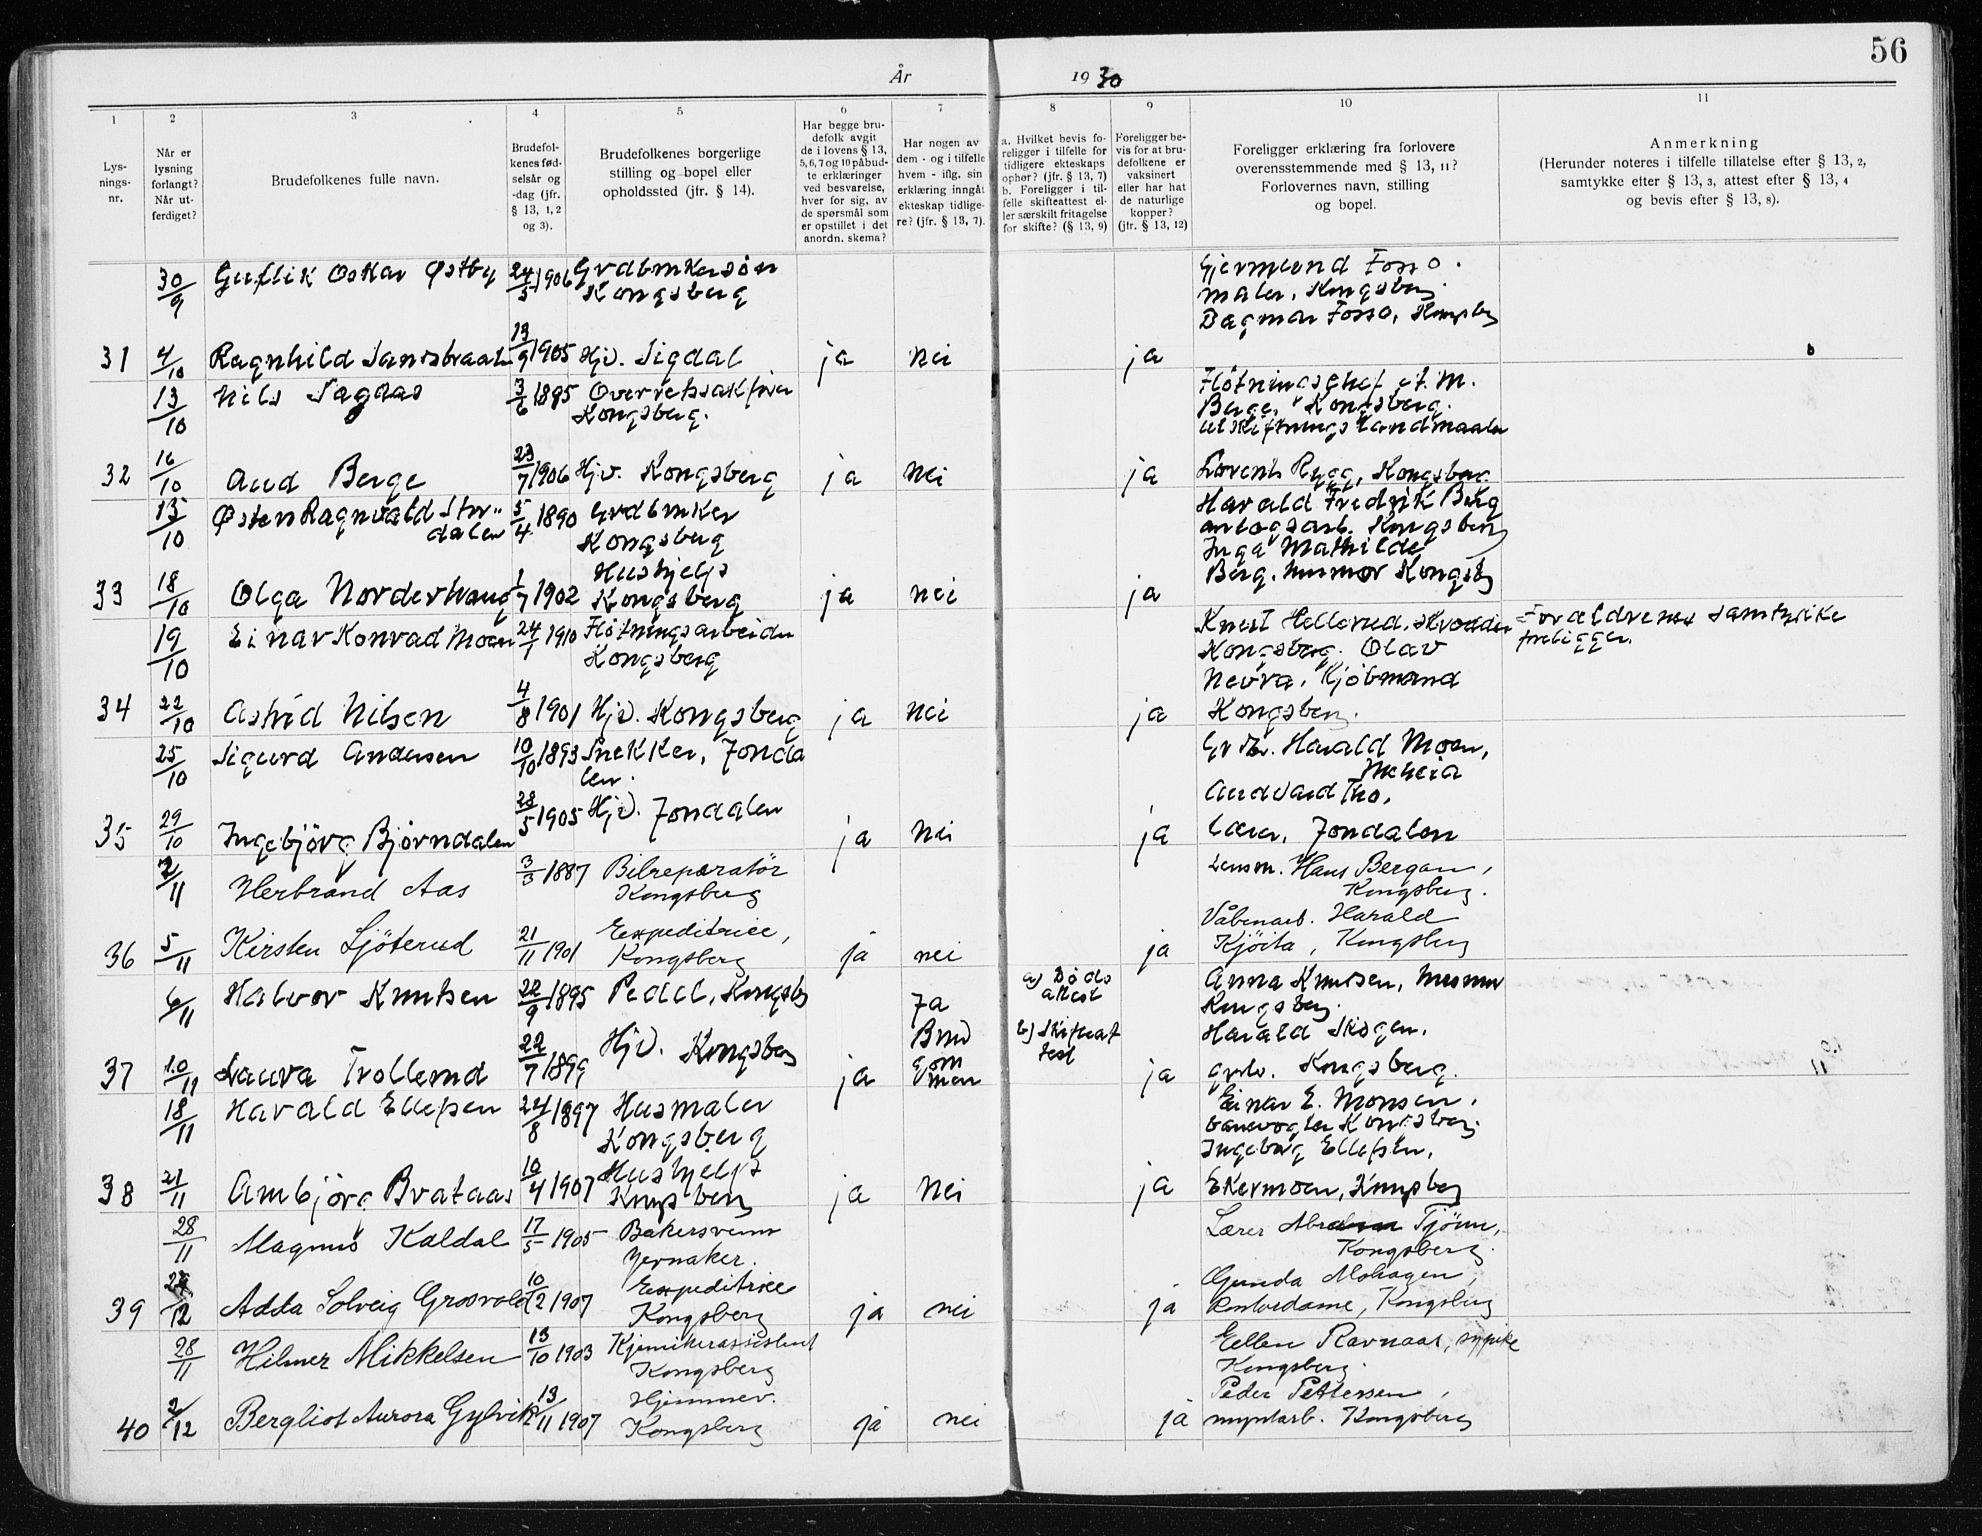 56
År 1930
1 2 3 4 5 6 7 8 9 10 11
Lys-
nings-
nr.
Når er
lysning
forlangt?
Når ut-
ferdiget?
Brudefolkenes fulle navn.
Brudefol-
kenes fød-
selsår og
-dag (jfr.
§ 13, 1, 2
og 3).
Brudefolkenes borgerlige
stilling og bopel eller
opholdssted (jfr. § 14).
Har begge bru-
defolk avgit
de i lovens § 13,
5, 6, 7 og 10 påbud-
te erklæringer
ved besvarelse,
hver for sig, av
de spørsmål som
er opstillet i det
anordn. skema?
Har nogen av
dem - og i tilfelle
hvem - iflg. sin
erklæring inngåt
ekteskap tidlige-
re? (jfr. § 13, 7).
a. Hvilket bevis fo-
religger i tilfelle for
tidligere ekteskaps
ophør? (jfr. § 13, 7)
b. Foreligger i til-
felle skifteattest el-
ler særskilt fritagelse
for skifte? (§ 13, 9)
Foreligger be-
vis for at bru-
defolkene er
vaksinert
eller har hat
de naturlige
kopper?
(jfr. § 13, 12)
Foreligger erklæring fra forlovere
overensstemmende med § 13, 11?
Forlovernes navn, stilling
og bopel.
Anmerkning
(Herunder noteres i tilfelle tillatelse efter § 13, 2,
samtykke efter § 13, 3, attest efter § 13, 4
og bevis efter § 13, 8).
30/9 Oskar Østby 24/5 1906 Grdbrukersøn
Kongsberg
Gjermund Fosso.
maler, Kongsberg.
Dagmar Fosso, Kongsbg
31 4/10 Ragnhild 13/9 1905 Hjv. Sigdal ja nei ja
13/10 Nils Sagaas 3/6 1895 Overretssakfører
Kongsberg.
Fløtningschef
Berge, Kongsberg.
utskiftningslandmaaler
32 16/10 Aud Berge 23/7 1906 Hjv. Kongsberg ja nei ja Lorents Rygg, Kongsberg
13/10 Østen Ragnvald Stor-
dalen 5/4 1890 Grdbruker
Kongsberg
Harald Fredrik Berg
anlogsarb. Kongsberg
Inga Mathilde
33 18/10 Olga Norderhaug 1/7 1902 Hushjelp
Kongsberg ja nei ja Berg, husmor Kongsbg
19/10 Einar Konrad Moen 24/1 1910 Fløtningsarbeider
Kongsberg
Knut Hellerud, skrædder
Kongsberg. Olav
Nevra, Kjøbmand
Forældrenes samtykke
foreligger.
34 22/10 Astrid Nilsen 4/8 1901 Hjv. Kongsberg ja nei ja Kongsberg.
25/10 Sigurd Andersen 10/10 1893 Snekker, Jonda
len.
Harald Moen,
Meheia
Audvard Tho,
35 29/10 Ingebjörg Bjørndalen 28/5 1905 Hjv. Jondalen ja nei ja lærer, Jondalen
2/11 Herbrand Aas 3/3 1887 Bilreparatør
Kongsberg
Lensm. Hans Bergan,
Kongsberg.
Våbenarb. Harald
36 5/11 Kirsten Sjöterud 21/11 1901 Expeditrice,
Kongsberg ja nei ja Kjöita, Kongsberg
6/11 Halvor Knutsen 22/9 1895 Pedel, Kongsbg
Ja
Brud
gom
men
a) Døds
attest
b) Skifteat
test
Anna Knutsen, husmor
Kongsberg.
Harald Skogen,
37 10/11 Laura Trollerud 22/7 1899 Hjv. Kongsberg ja ja grdb. Kongsberg.
18/11 Harald Ellefsen 24/8 1897 Husmaler
Kongsberg
Einar E. Monsen,
banevogter Kongsberg.
Ingeborg Ellefsen,
38 21/11 Ambjörg Brataas 10/4 1907 Hushjelp
Kongsberg ja nei ja Ekermoen, Kongsberg
28/11 Magnus Kaldal 17/5 1905 Bakersvenn
Jevnaker.
Lærer Tjönn,
Kongsberg.
Gunda Mohagen,
39 12 Adda Solveig Grosvold 10/12 1907 Expeditrice
Kongsberg ja nei ja Kongsberg
28/11 Hilmer Mikkelsen 13/10 1903 Kjemikerassistent
Kongsberg
Ellen Ravnaas, sypike
Kongsberg.
Peder Pettersen,
40 2/12 Bergliot Aurora Gylvik 13/11 1907 Hjemmev.
Kongsberg ja nei ja myntarb. Kongsberg